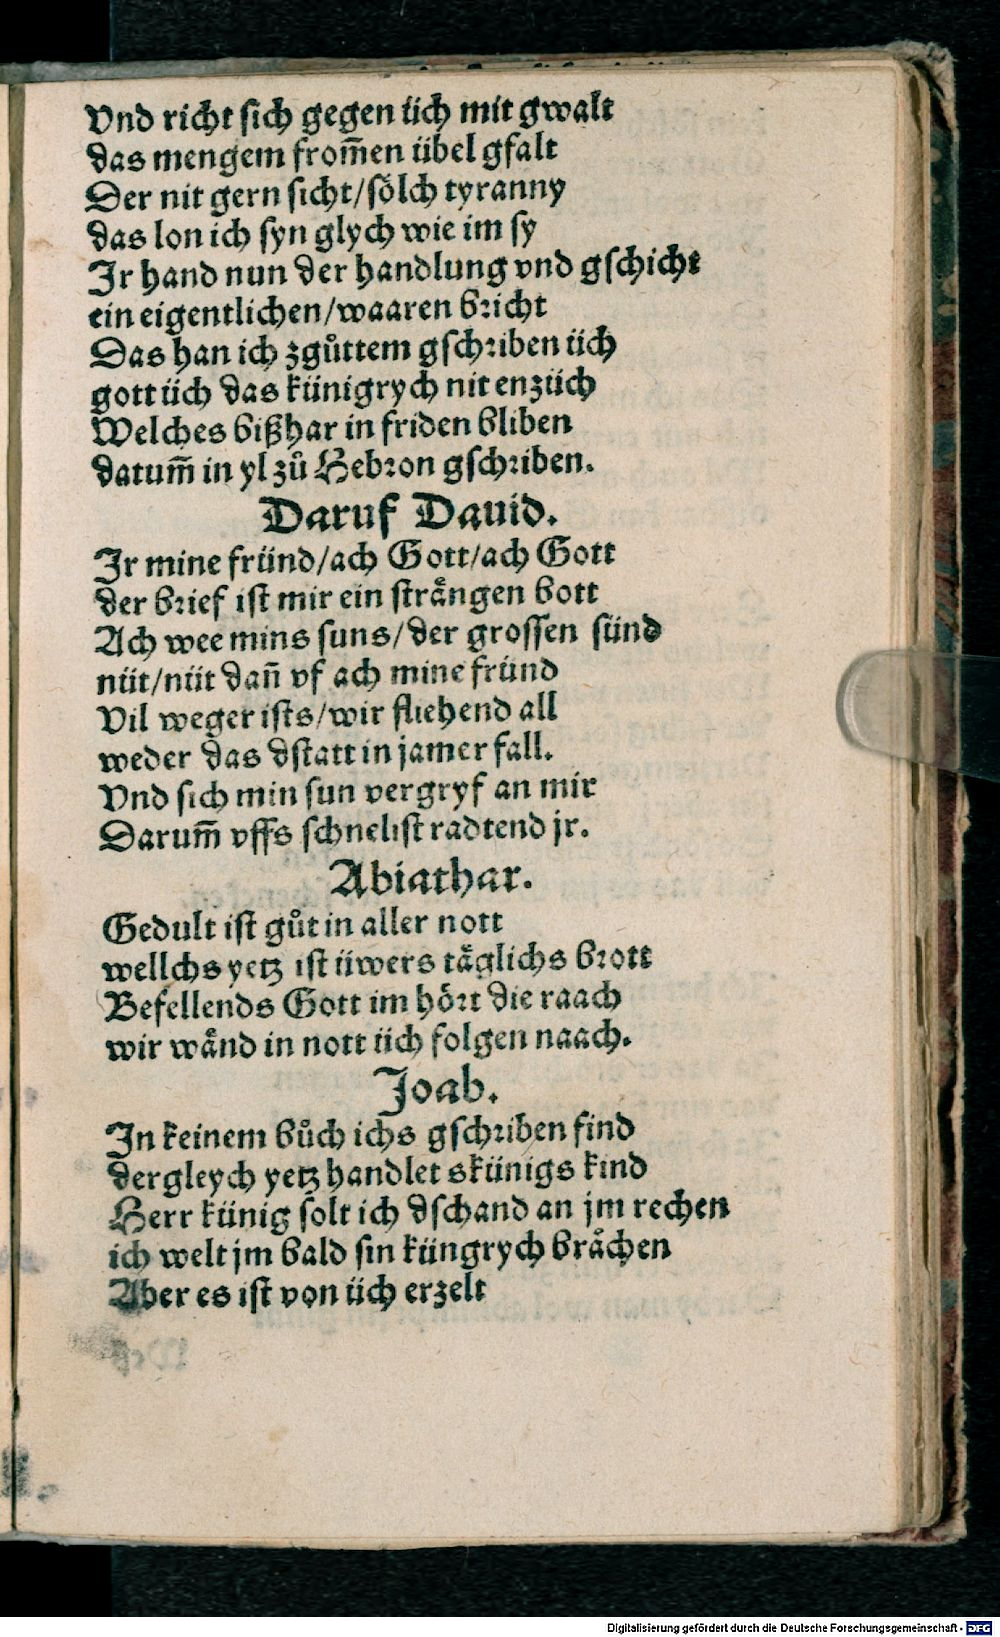 vnd richt sich gegen üch mit gwalt
das mengem from̄en übel gfalt
Der nit gern sicht/sölch tyranny
das lon ich syn glych wie im sy
Jr hand nun der handlung vnd gschicht
ein eigentlichen/waaren bricht
Das han ich zgůttem gschriben üch
gott üch das künigrych nit enzüch
Welches bißhar in friden bliben
datum̄ in yl zů Hebron gschriben.
Daruf Dauid.
Jr mine fründ/ach Gott/ach Gott
der brief ist mir ein strängen bott
Ach wee mins suns/der grossen sünd
nüt/nüt dan̄ vf ach mine fründ
Vil weger ists/wir fliehend all
weder das dstatt in jamer fall.
Vnd sich min sun vergryf an mir
Darum̄ vffs schnelist radtend jr.
Abiathar.
Gedult ist gůt in aller nott
wellchs yetz ist üwers täglichs brott
Befellends Gott im hört die raach
wir wänd in nott üch folgen naach.
Joab.
Jn keinem bůch ichs gschriben find
dergleych yetz handlet skünigs kind
Herr künig solt ich dschand an jm rechen
ich welt jm bald sin küngrych bråchen
Aber es ist von üch erzelt
Digitalisierung gefördert durch die Deutsche Forschungsgemeinschaft - DFG